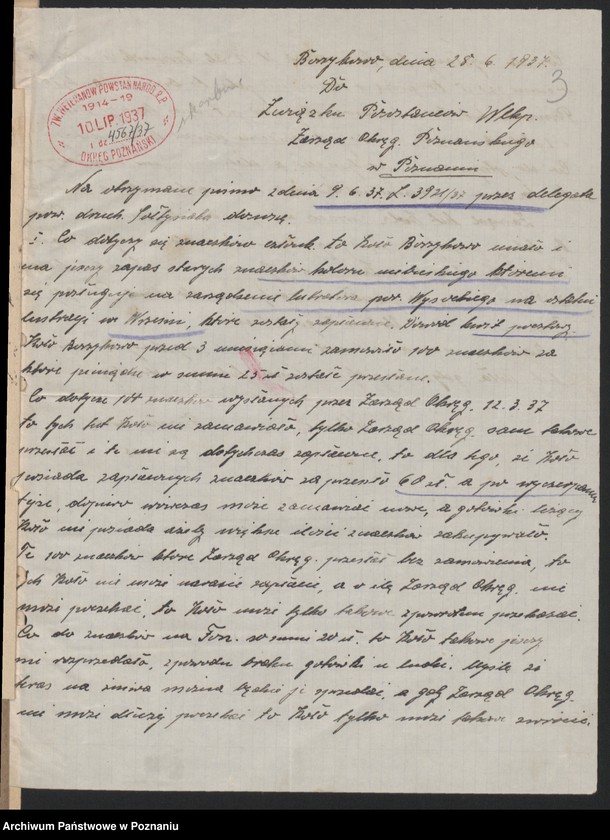 Borzykowo, dnia 28. 6. 1937.
3
Do
Związku Powstańców Wlkp.
Zarząd Okręg. Poznańskiego
w Poznaniu
ZW. WETERANÓW POWSTAŃ NAROD. R.P.
1914-19
10. LIP. 1937
L. dz. 4567/37
OKRĘG POZNAŃSKI
Na otrzymane pismo z dnia 9. 6. 37. L. 3921/37 przez delegata
pow. druch. donoszę.
Co dotyczy się znaczków członk. to Koło Borzykowo miało i
ma jeszcze zapas starych znaczków koloru niebieskiego któremi
się posługuje na zarządzenie pow. Wysockiego na ostatni
lustracji w Wrześni, które zostały zapłacone.
Koło Borzykowo przed 3 miesiącami zamówiło 100 znaczków za
które pieniądze w sumi 25 zł zostały przesłane.
Co dotycze 100 znaczków wysłanych przez Zarząd Okręg. 12. 3. 37
to tych Koło ni zamawiało, tylko Zarząd Okręg. sam takowe
przesłał i te ni są dotychczas zapłacone, to dla tego, że Koło
posiada zapłaconych znaczków za przeszło 60 zł. a po wyczerpaniu
tyże, dopiero wówczas może zamawiać nowe, a gotówki
Koło ni posiada ażeby większe ilości znaczków zakupywało.
Te 100 znaczków które Zarząd Okręg. przesłał bez zamówienia, to
ich Koło nie może narazie zapłacić, a o ile Zarząd Okręg. ni
może poczekać, to Koło może tylko takowe zpowrotem przekazać.
Co do znaczków na Fon. w sumi 20 zł. to Koło takowe jeszcze
ni rozprzedało, z powodu braku gotówki u ludzi. Myślę że
teraz na żniwa można będzie je sprzedać, a gdy Zarząd Okręg.
ni może dłużej poczekać to Koło tylko może takowe zwrócić.
Archiwum Państwowe w Poznaniu